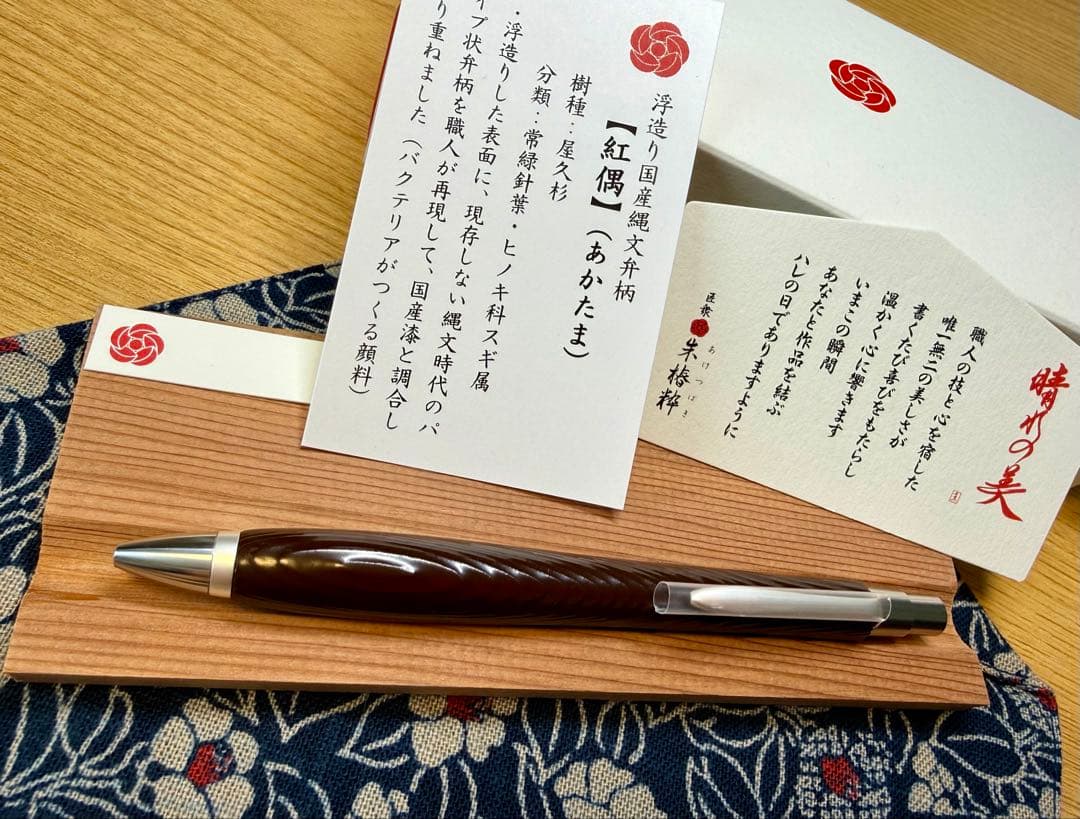 浮造り国産縄文弁柄
【紅偶】(あかたま)
樹種：屋久杉
分類：常緑針葉・ヒノキ科スギ属
・浮造りした表面に、現存しない縄文時代のパ
イプ状弁柄を職人が再現して、国産漆と調合し
り重ねました（バクテリアがつくる顔料）
晴れの美
職人の技と心を宿した
唯一無二の美しさが
書くたび喜びをもたらし
温かく心に響きます
いまこの瞬間
あなたと作品を結ぶ
ハレの日でありますように
匠銘
朱椿粋
あけつばき